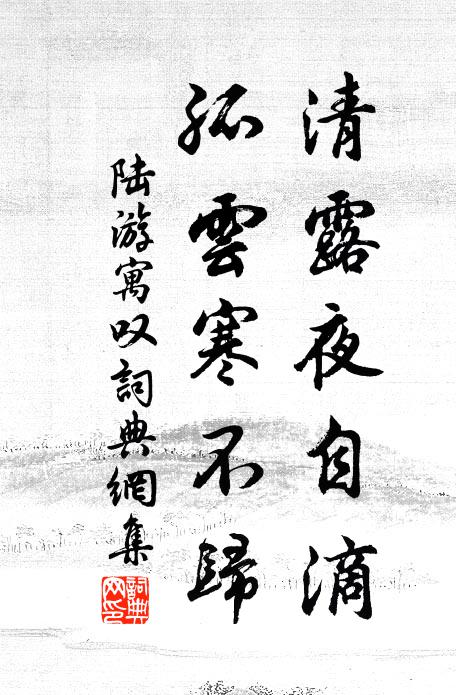 清露夜自滴
孤雲寒不歸
陆游寓叹詞典網集
詞典
网印